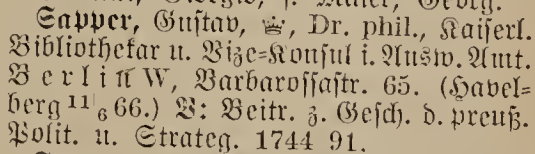 Sapper, Gustav, ♕, Dr. phil., Kaiserl.
Bibliothekar u. Vize-Konsul i. Ausw. Amt.
Berlin W, Barbarossastr. 65. (Havel-
berg 11/6 66.) V: Beitr. z. Gesch. d. preuß.
Polit. u. Strateg. 1744 91.